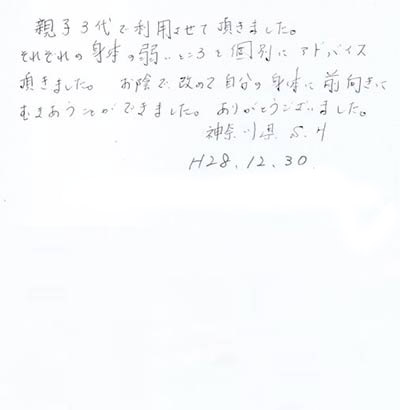 親子3代で利用させて頂きました。
それぞれの身体の弱いところを個別にアドバイス
頂きました。 お陰で改めて自分の身体に前向きに
むきあうことができました。ありがとうございました。
神奈川県 S.H
H28.12.30